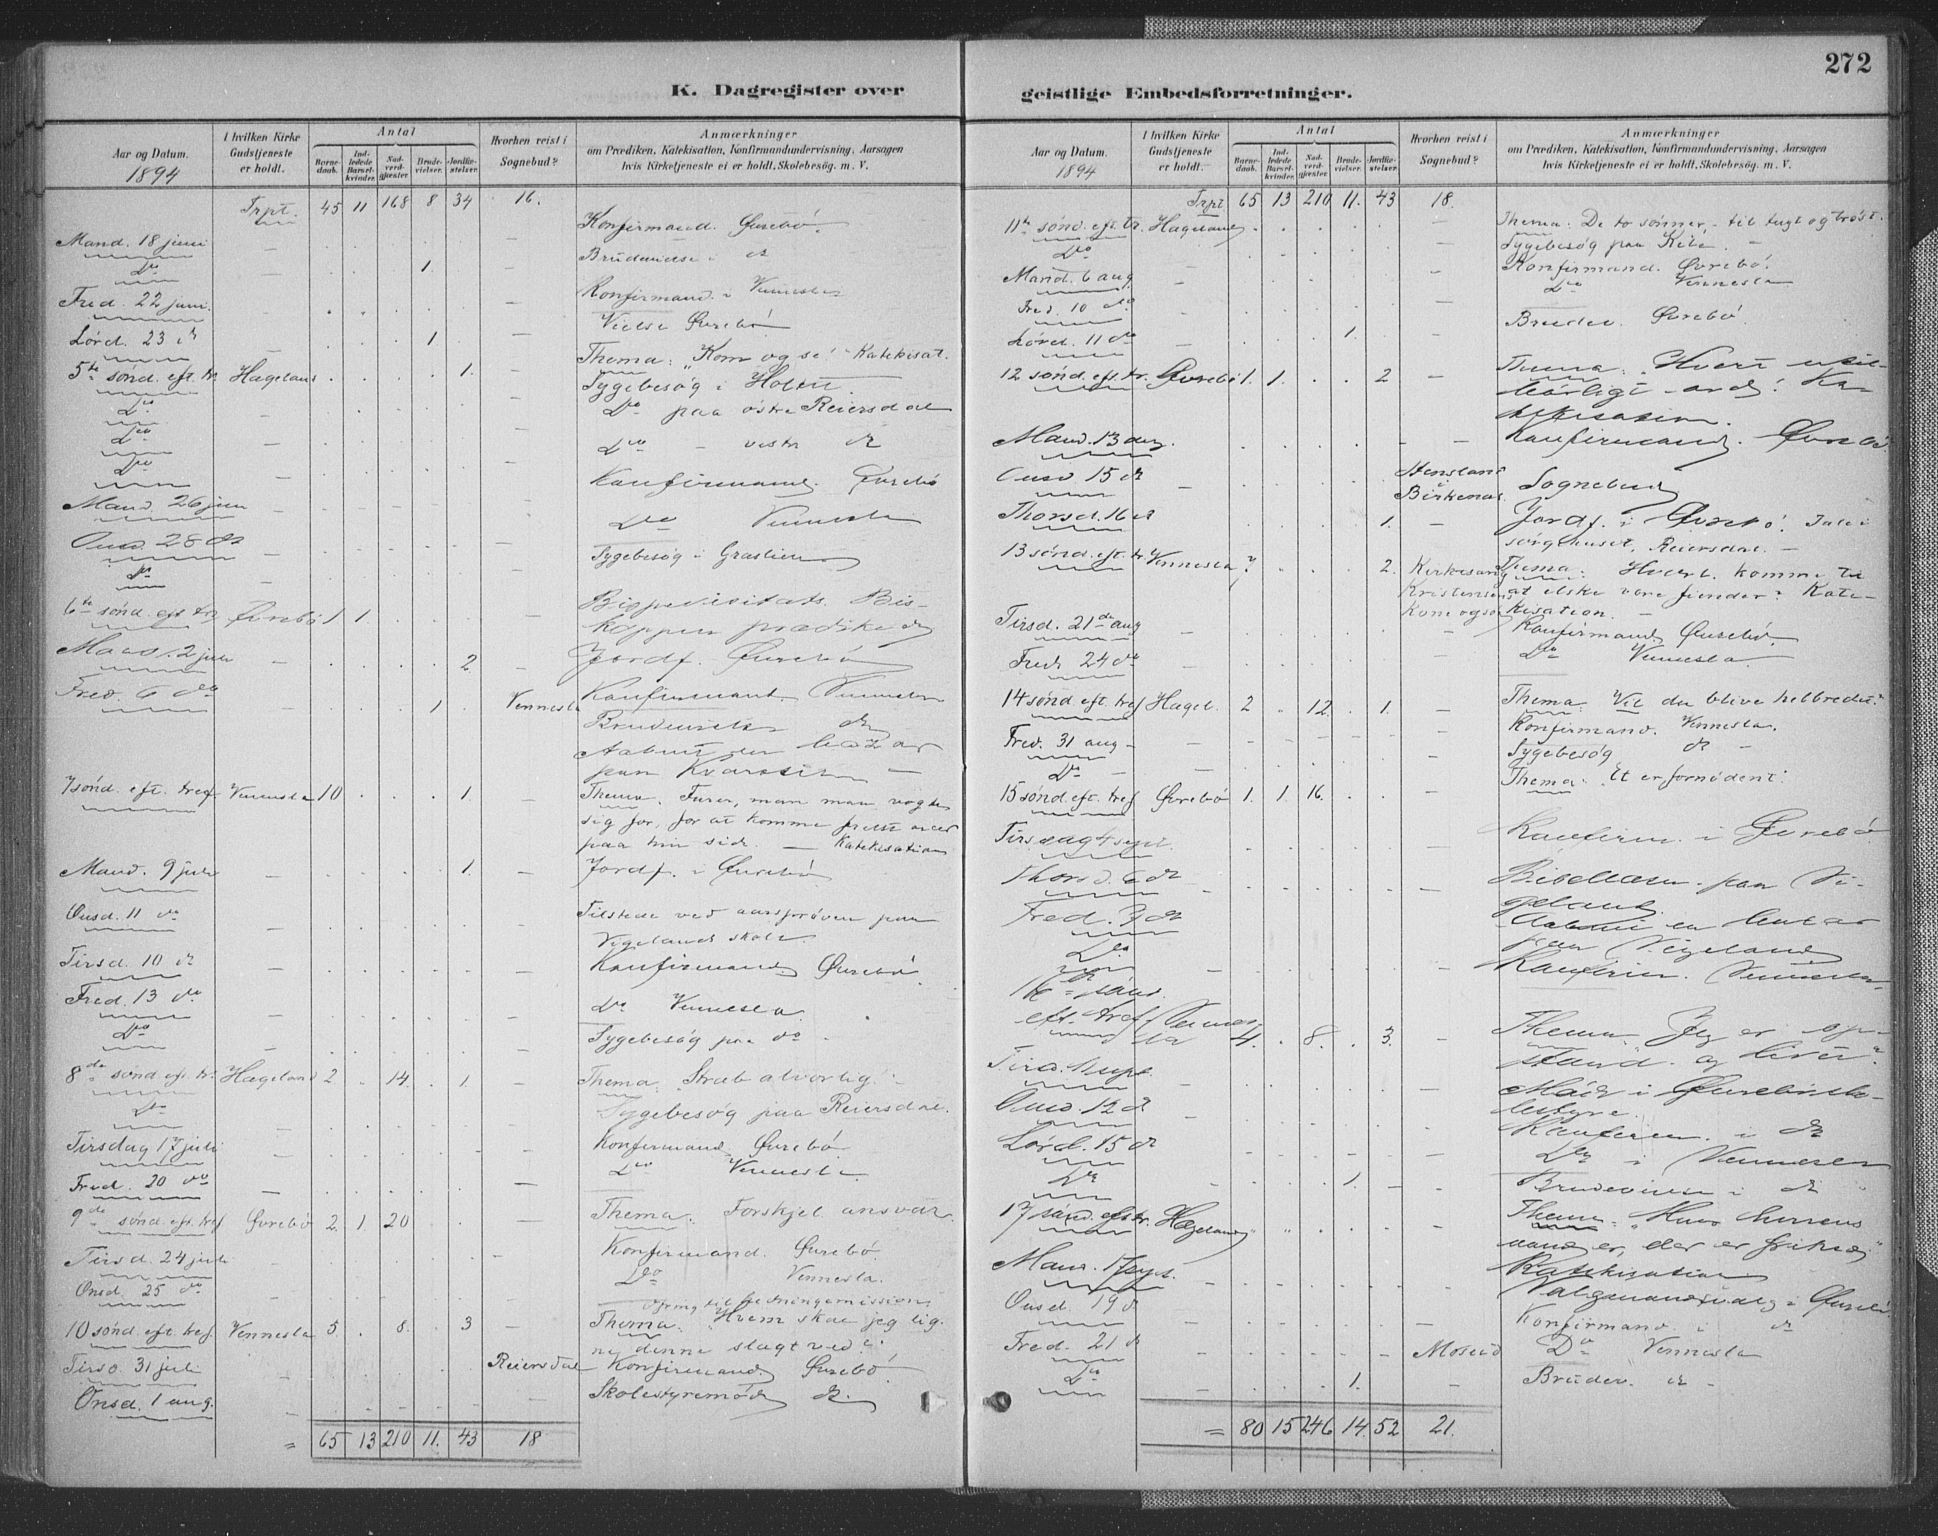 272
K. Dagregister over
geistlige Embedsforretninger.
Aar og Datum.
1894
I hvilken Kirke Gudstjeneste er holdt.
Antal
Barnedaab.
Indledede Barselkvinder.
Nadverdgjæster.
Brudevielser.
Jordfæstelser.
Hvorhen reist i Sognebud?
Anmærkninger
om Prædiken, Katekisation, Konfirmandundervisning, Aarsagen
hvis Kirketjeneste ei er holdt, Skolebesøg. m. V.
Trpt. 45 11 168 8 34 16.
Mand. 18 juni - Konfirmand. Øvrebø.
Do - 1. - Brudevielse i do
Fred. 22 juni - Konfirmand. i Vennesla
Lørd. 23 do - 1 - Vielse Øvrebø
5te sønd. eft. tr. Hægeland 1. - Thema: "Kom og se" - Katekisat.
Do Sygebesøg i Holten
Do - Do paa østre Reiersdal
Do - Do - vestre do
Mand. 26 juni - Konfirmand. Øvrebø
Onsd. 28 do - Do Vennesla
Do - Sygebesøg i Graslien
6te sønd. eft. tr. Øvrebø 1 1 Bispevisitats. Biskoppen prædikede
Mand. 2 juli - 2 - Jordf. Øvrebø
Fred. 6 do - 1 Vennesla Konfirmand. Vennesla
Brudevielse do
Aabnet en bazar
paa Kvarstein -
7 sønd. eft. tref. Vennesla 10 1. Thema:
sig for, for at komme frelst over
paa hin side. - Katekisation
Mand. 9 juli - 1. - Jordf. i Øvrebø
Onsd. 11 do - Tilstede ved aarsprøven paa
Vigelands skole.
Tirsd. 10 do - Konfirmand. Øvrebø
Fred. 13 do - Do Vennesla
Do - Sygebesøg paa do
8de sønd. eft. tr. Hægeland 2 14 1. - Thema: Stræb alvorlig! -
Do - Sygebesøg paa Reiersdal.
Tirsdag 17 juli - Konfirmand. Øvrebø
Fred. 20 do - Do Vennesla
9de sønd. eft. tref. Øvrebø 2 1 20 - Thema: Forskjel. ansvar
Tirsd. 24 juli - Konfirmand. Øvrebø.
Onsd. 25 do - Do Vennesla.
10 sønd. eft. tref. Vennesla 5. 8. 3 - Thema: "Hvem skal jeg lig-
ne denne slægt ved?"
Tirsd. 31 juli - Reiersdal Konfirmand. Øvrebø.
Onsd. 1 aug. - Skolestyremøde do.
= 65 13 210 11. 43 18
Aar og Datum.
1894
I hvilken Kirke Gudstjeneste er holdt.
Antal
Barnedaab.
Indledede Barselkvinder.
Nadverdgjæster.
Brudevielser.
Jordfæstelser.
Hvorhen reist i Sognebud?
Anmærkninger
om Prædiken, Katekisation, Konfirmandundervisning, Aarsagen
hvis Kirketjeneste ei er holdt, Skolebesøg. m. V.
Trpt 65 13 210 11. 43 18.
11te sønd. eft. tr. Hægeland - Thema: De to sønner - til tugt og trøst.
Do Sygebesøg paa
Mand. 6 aug - Konfirmand. Øvrebø.
Fred. 10 do - Do Vennesla
Lørd. 11 do 1. - Brudev. Øvrebø
12 sønd. eft. tr. Øvrebø 1. 1. 2 - Thema: "Hvert util-
børligt ord". Ka-
tekisation.
Mand. 13 aug. - Konfirmand. Øvrebø
Onsd 15 do - Birkenæs Sognebud
Thorsd. 16 do 1. - Jordf. i Øvrebø. Tale i
sørgehuset, Reiersdal. -
13 sønd. eft. tr. Vennesla 7 2. Thema: komme til
at elske vore fiender? Kate-
kisation. -
Tirsd. 21de aug - Konfirmand. Øvrebø
Fred. 24 do - Do Vennesla
14 sønd. eft. tref Hægel. 2 12 1. - Thema: Vil du blive helbredet?
Fred. 31 aug - Konfirmand. Vennesla.
Do - Sygebesøg do -
15 sønd. eft. tref Øvrebø 1. 1 16. Thema: "Et er fornødent".
Tirsdag 4 sept. Konfirm. i Øvrebø
Thorsd. 6 do - Bibellæsn. paa Vi-
geland
Fred. 7 do - Aabnet en bazar
paa Vigeland
Do - Konfirm. Vennesla
16de sønd.
eft. tref Vennesla 4. 8. 3. - Thema: "Jeg er op-
stand. og livet".
Tirsd. 11 sept. Møde i Øvrebø skolestyre.
Onsd. 12 do - Konfirm. i do
Lørd. 15 do - Do i Vennesla
Do - 1. - Brudevielse i do
17 sønd. eft. tr. Hægeland - Thema: "Hvor herrens
aand er, der er frihed."
Katekisation
Mand. 17 sept. - Valgmandsvalg i Øvrebø
Onsd. 19 do - Konfirmand i do
Fred. 21 do - Moseid Do Vennesla
Do - 1. - Brudev. do -
= 80 15 246 14. 52 21.